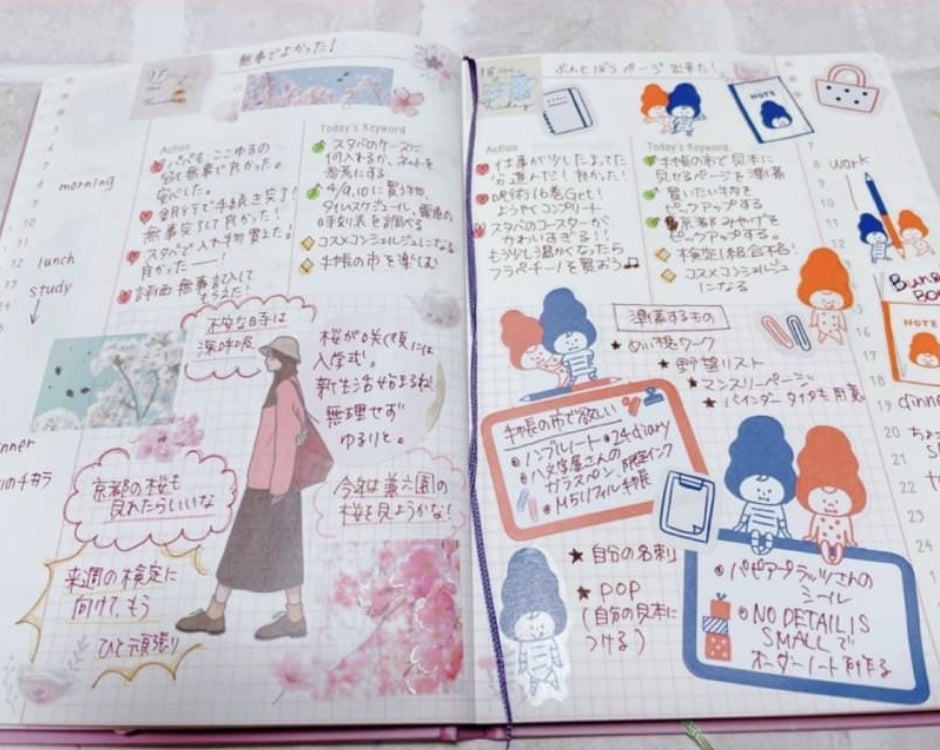 無事でよかった!
17
morning
lunch
study
↓
Action
安心した。
銀行で手続き完了!
無事完了して良かった!
スタバで入れ物買えた!
良かったーー!
評価無事記入して
もらえた!
Today's Keyword
スタバのケースに
何入れるか、ネットを
参考にする
4/9,10に買う物、
タイムスケジュール、電車の
時刻表を調べる
コスメコンシェルジュになる
手帳の市を楽しむ
不安な日は
深呼吸
桜が咲く頃には
入学式。
新生活始まるね!
無理せず
ゆるりと。
京都の桜も
見れたらいいな
今年は兼六園の
桜を見ようかな!
来週の検定に
向けて、もう
ひと頑張り
nner
のチカラ
18
ぶんとぼうページ出来た!
NOTE
Action
仕事が少しだよてた
分進んだ! 良かった!
呪術16巻Get!
ようやくコンプリート
スタバのコースターが
かわいすぎる!!
もう少し温かくなったら
フラペチーノを買おう♫
Today's Keyword
手帳の市で見本に
見せるページを準備
買いたい物を
ピックアップする
京都みやげを
ピックアップする。
検定1級合格!
コスメコンシェルジュ
になる
準備するもの
★ ぬい換ワーク
★ 野望リスト
★ マンスリーページ
★ バインダータイプも用意
手帳の市で欲しい
● ノンブルノート ● 24diary
● 八文字屋さんの
ガラスペン 限定インク
● M5リフィル手帳
★ 自分の名刺
★ POP
(自分の見本に
つける)
● パピアプラッツさんの
シール
● NO DETAIL IS
SMALLで
オーダーノート作る
7
8 work
9
10
11
12
NOTE
16
17
18
19 dinn
20
21
22
23
24